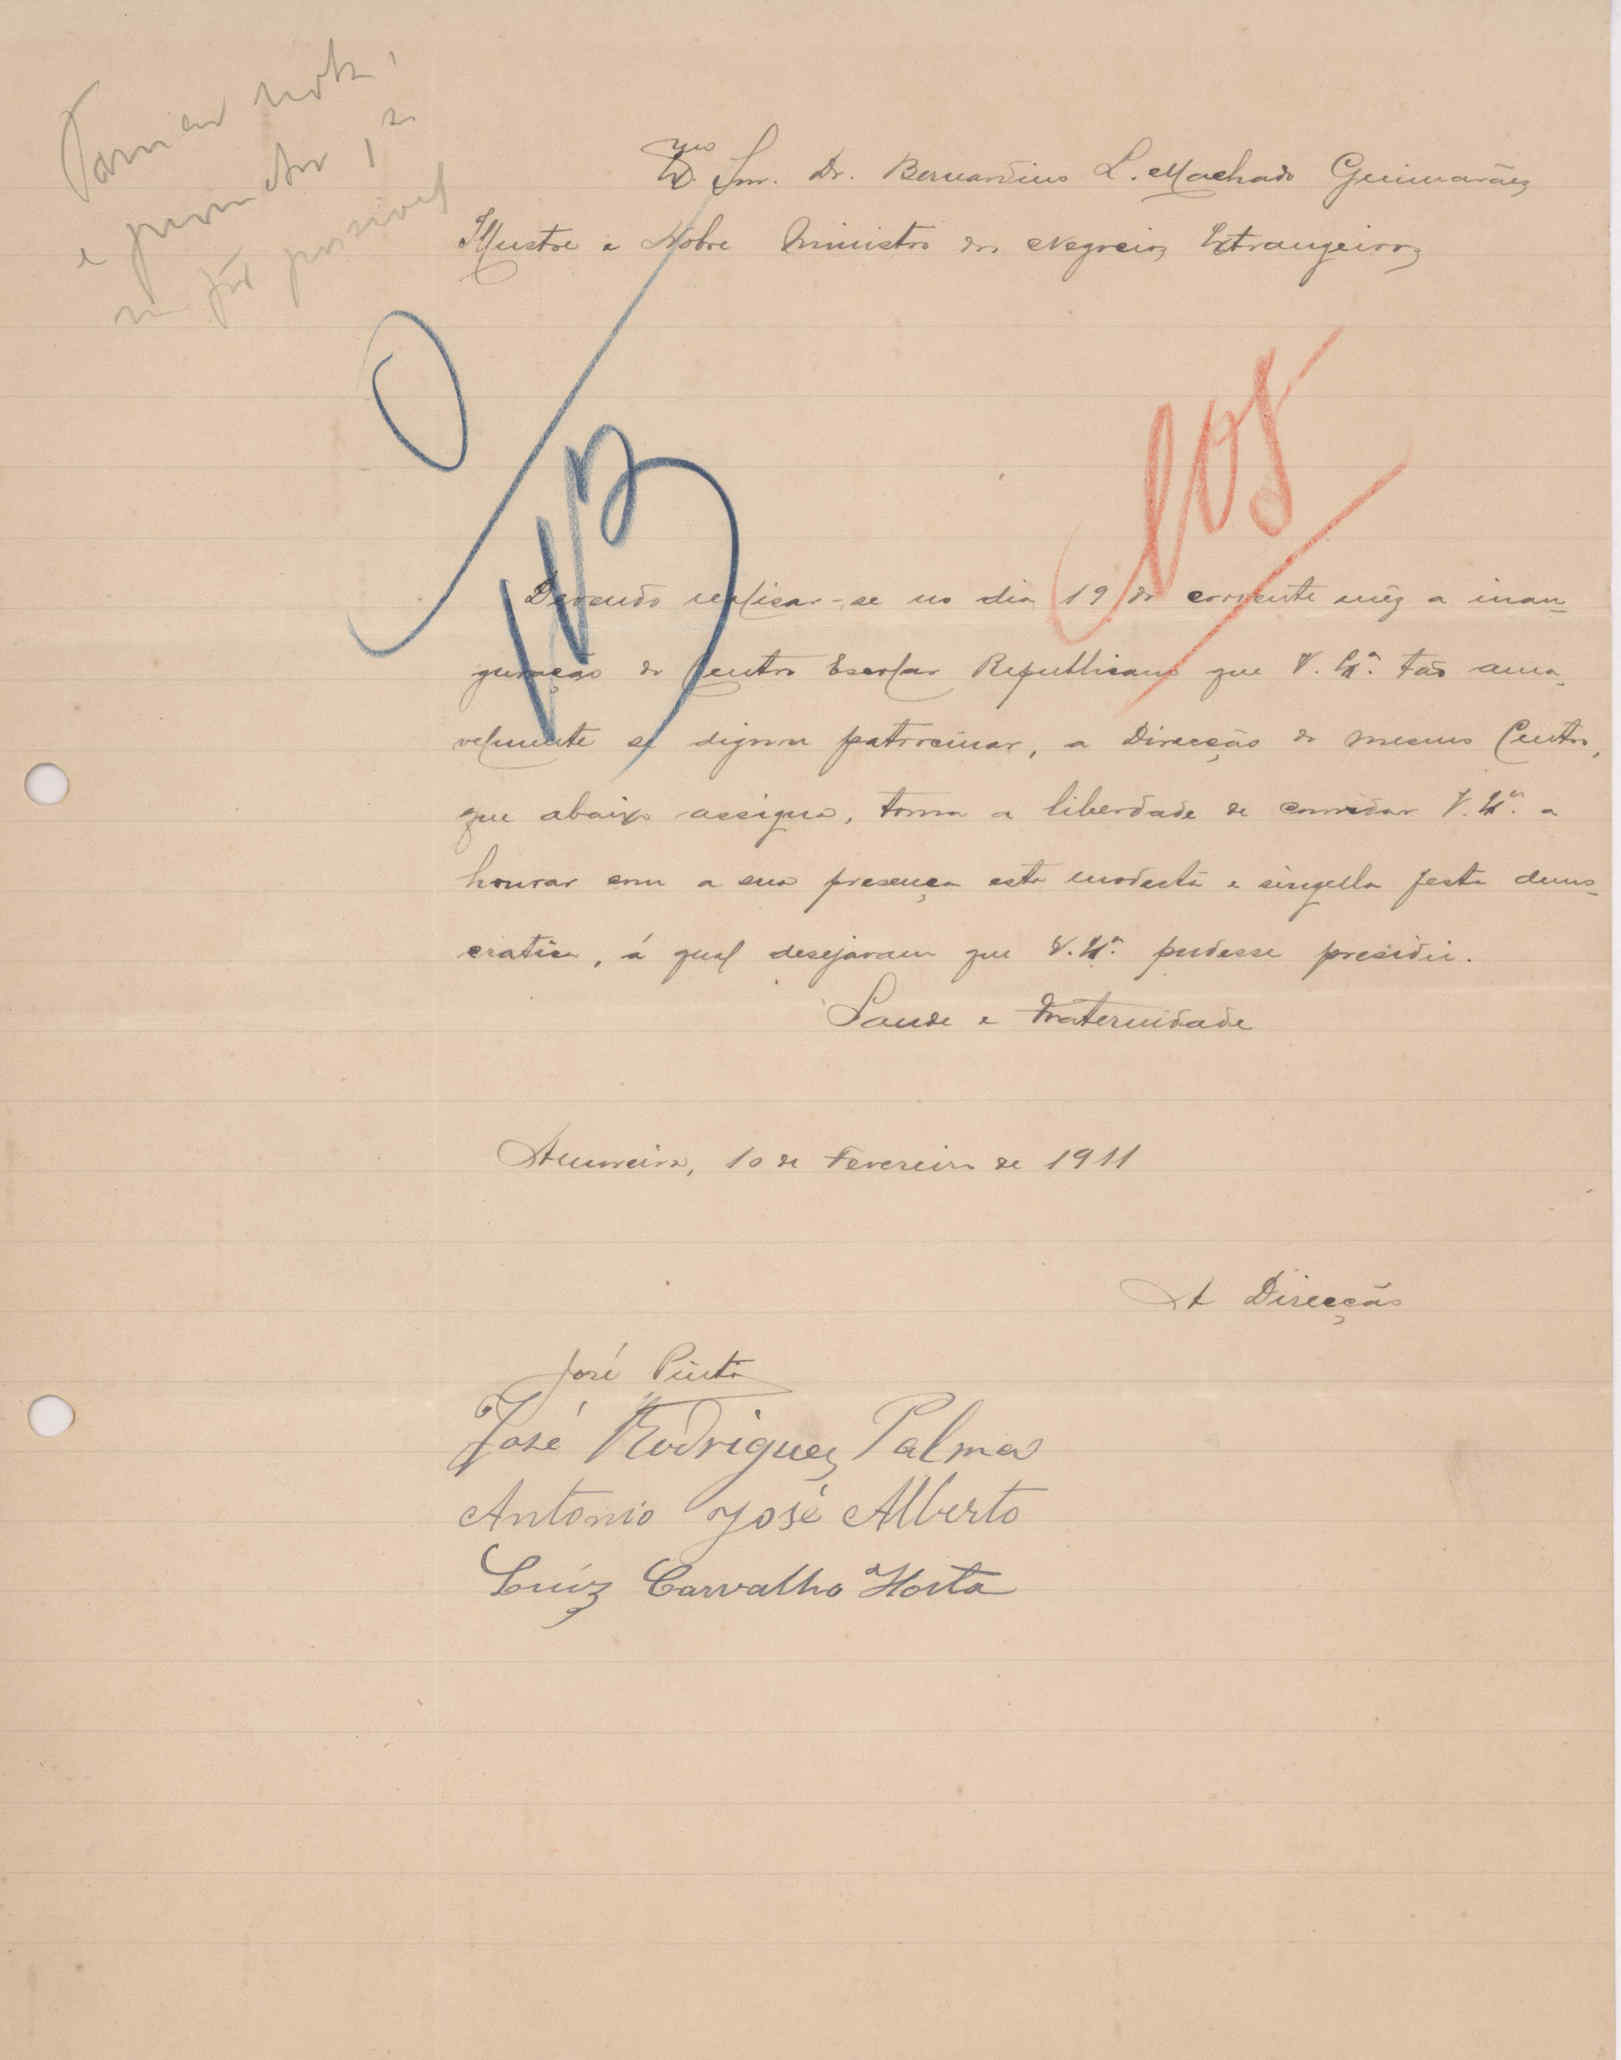 Exmo Snr. Dr. Bernardino L. Machado Guimarães
Illustre e Nobre Ministro dos Negocios Extrangeiros
Devendo realisar-se no dia 19 do corrente mêz a inau-
guração do Centro Escolar Republicano que V. Exª. tão ama-
velmente se dignou patrocinar, a Direcção do mesmo Centro,
que abaixo assigna, toma a liberdade de convidar V. Exª. a
honrar com a sua presença esta modesta e singella festa demo-
cratica, á qual desejavam que V. Exª. pudesse presidir.
Saude e Fraternidade
10 de Fevereiro de 1911
A Direcção
José Pinto
José Rodrigues Palma
Antonio José Alberto
Luiz Carvalho Horta